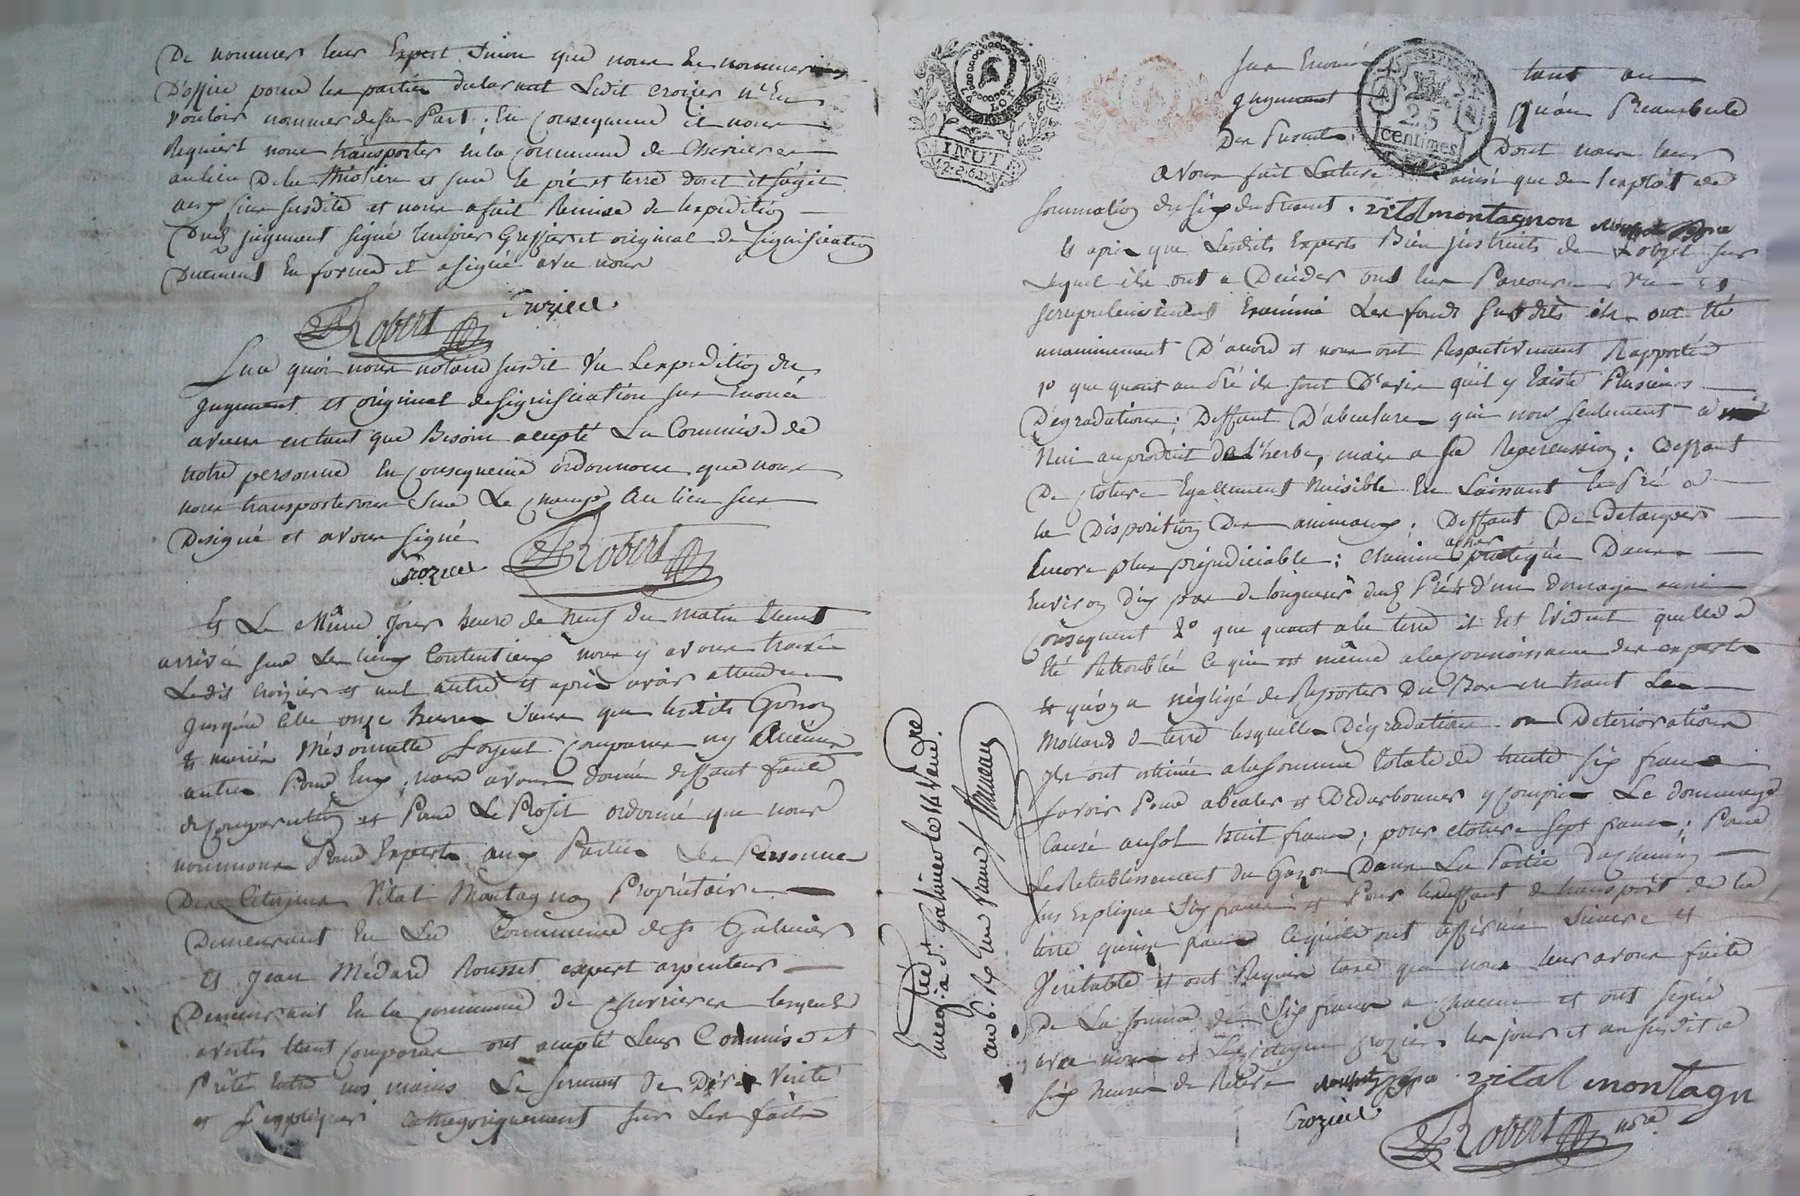 De nommer leur Expert Sinon que nous Le nommerions
D'office pour les parties declarant Ledit croizier N'En
vouloir nommer de sa Part; En Consequence il nous
Requiert nous transporter en la Commune de Cheviere
au lieu De la Thiolière et sur le pré et terre dont il s'agit
aux fins susdite et nous a fait Remise de l'expedition
Dud jugement signé Greffier et original de signification
Duement En forme et a signé avec nous
Robert Crozier
Sur quoi nous notaire susdit Vu L'expedition du
Jugement et original de signification sus Enoncé
avons en tant que Besoin accepté La Commise de
notre personne En Consequence ordonnons que nous
nous transporterons Sur Le Champ Au lieu sus
Designé et avons signé
Crozier Robert
Et Le Même Jour heure de neuf du matin Etant
arrivé sur Les lieux Contentieux nous y avons trouvé
Ledit Croizier et nul autre et après avoir attendu
Jusqu'à celle onze heures sans que lesdits Gonon
et mariée Mésonnette soyent Comparus ny Aucune
autres Pour Eux, nous avons donné deffaut faute
de Comparution et Pour Le Profit ordonné que nous
nommons Pour Experts aux Parties Les Personnes
Des Citoyens Vital Montagnon Propriétaire
Demeurant En La Commune de St Galmier
Et Jean Médard Rousset expert arpenteur
Demeurant En la Commune de Chevrieres lesquels
avertis Etant Comparus ont accepté Leur Commise et
Prêté Entre nos mains Le serment de Dire Verité
et s'expliquer Cathegoriquement sur Les faits
LA LOI
MINUTE
25
centimes
sus Enoncé tant au
Jugement Qu'au Preambule
Des Presentes Dont nous leurs
avons fait Lecture ainsi que de l'exploit de
sommation du six du Present. vital montagnon
Et après que Lesdits Experts Bien instruits de L'objet sur
Lequel ils ont a Decider ont eux Parcouru Vu Et
scrupuleusement Examiné Les fonds susdits ils ont été
unanimement D'accord et nous ont Respectivement Rapporté
1º que quant au Pré ils sont D'avis qu'il y Existe Plusieurs
Dégradations; Deffaut D'abculure qui non seulement a
Nui au produit de L'herbe, mais a sa Repercussion; Deffaut
De Cloture Egallement Nuisible En Laissant le Pré a
la Disposition Des animaux; Deffaut De Detauper
Encore plus préjudiciable; chemin apres pratiqué Dans
Environ dix pas de longueur dud Pré d'un domage aussi
Consequent 2º que quant a la terre il Est Evident quelle a
été Retroublée Ce qui est même a la Connoissance des experts
et qu'on a négligé de Reporter Du Bas en haut Les
Mollards de terre lesquelles Dégradations ou Deteriorations
Ils ont estimée a la somme totale de trente six francs
savoir Pour abcaler et Dedarbonner y Compris Le dommage
Causé au sol huit francs; pour cloture sept francs; Pour
Le Retablissement du Gazon Dans La Partie du chemin
sus Expliqué Six francs et Pour le deffaut de transport de la
terre quinze francs Ce qu'ils ont affirmé Sincere et
Veritable et ont Requis taxe que nous leur avons faite
De La somme de Six francs a chacun et ont signé
avec nous et Le Citoyen Crozier les jour et an susdit a
six heures de Relevé vital montagn
Crozier
Robert nre
Enregistré à St Galmier le 14 Vend.re
an 6. Reçu un franc